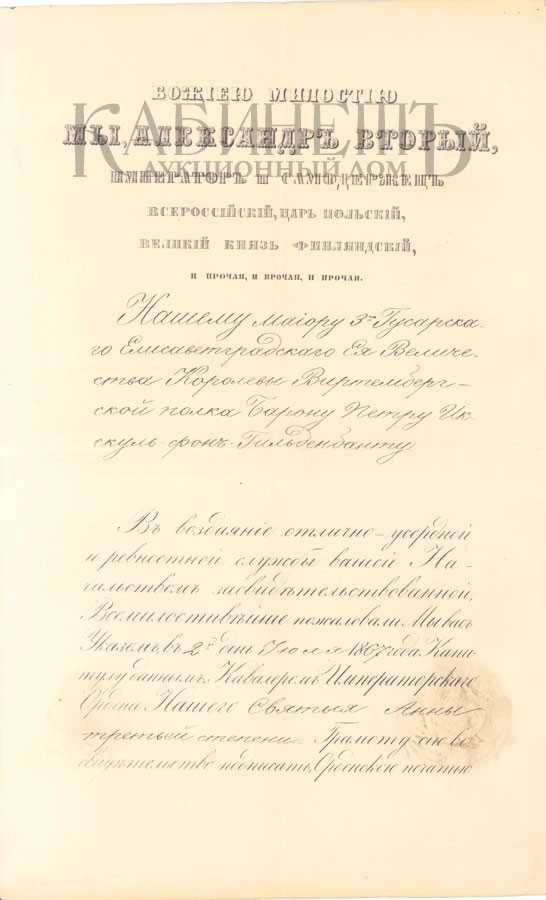 БОЖІЕЮ МИЛОСТІЮ
КАБИНЕТЪ
МЫ, АЛЕКСАНДРЪ ВТОРЫЙ,
АУКЦИОННЫЙ ДОМ
ИМПЕРАТОРЪ И САМОДЕРЖЕЦЪ
ВСЕРОССІЙСКІЙ, ЦАРЬ ПОЛЬСКІЙ,
ВЕЛИКІЙ КНЯЗЬ ФИНЛЯНДСКІЙ,
И ПРОЧАЯ, И ПРОЧАЯ, И ПРОЧАЯ.
Нашему Маіору 3го Гусарска-
го Елисаветградскаго Ея Величе-
ства Королевы Виртемберг-
ской полка Барону Петру Ик-
скуль-фонъ-Гильденбанту
Въ воздаяніе отлично-усердной
и ревностной службы вашей На-
чальствомъ засвидѣтельствованной,
Всемилостивѣйше пожаловали Мы васъ
Указомъ, въ 2й день Іюля 1867 года Капи-
тулу даннымъ, Кавалеромъ Императорскаго
Ордена Нашего Святыя Анны
третьей степени. Грамоту сію во
свидѣтельство подписать, Орденскою печатью